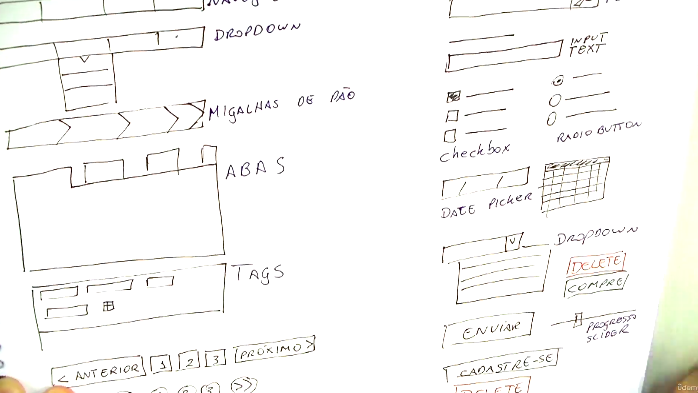 DROPDOWN
MIGALHAS DE PÃO
ABAS
TAGS
< ANTERIOR 1 2 3 PRÓXIMO >
INPUT
TEXT
checkbox
RADIO BUTTON
DATE PICKER
DROPDOWN
DELETE
COMPRE
ENVIAR
PROGRESSO
SLIDER
CADASTRE-SE
DELETE